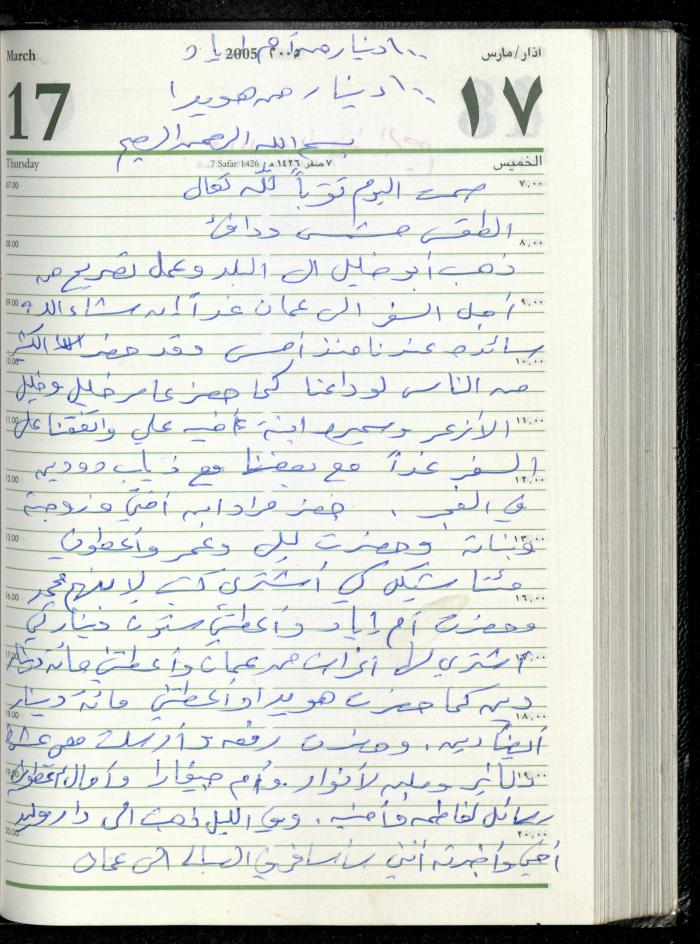 March 2005 ٢٠٠٥ اذار/مارس
١٠٠ دينار من أم إياد
17 ١٧
١٠٠ دينار من هويدا
بسم الله الرحمن الرحيم
Thursday 7 Safar 1426 ٧ صفر ١٤٢٦ الخميس
07.00 ٧,٠٠
صمت اليوم تقرباً لله تعالى
الطقس مشمس ودافئ
08.00 ٨,٠٠
ذهب أبو خليل الى البلد وعمل تصريح من
09.00 ٩,٠٠
أجل السفر الى عمان غداً إن شاء الله
سائده عندنا منذ أمس وقد حضر الكثير
10.00 ١٠,٠٠
من الناس لوداعنا كما حضر عامر خليل وخليل
11.00 ١١,٠٠
الأزعر وسميره ابنة أخيه علي واتفقنا على
السفر غداً مع بعضنا مع ذياب دودين
12.00 ١٢,٠٠
في الفجر . حضر مراد ابن أختي وزوجته
13.00 ١٣,٠٠
وبناته وحضرت ليلى وعمر وأعطوني
مئتا شيكل كي أشتري كتب لابنهم محمد
16.00 ١٦,٠٠
وحضرت أم إياد وأعطتني ستون دينار كي
17.00 ١٧,٠٠
أشتري لها أغراض من عمان وأعطتني مائة دينار
دين كما حضرت هويدا وأعطتني مائة دينار
18.00 ١٨,٠٠
أيضاً دين . وحضرت رفقه وأرسلت معي عشرة
19.00 ١٩,٠٠
دنانير وعلبه لأنوار وأم جيفارا وآمال أعطوني
رسائل لفاطمه وأمنيه . وفي الليل ذهبت الى دار وليد
20.00 ٢٠,٠٠
أخي وأخبرته أنني سأسافر في الصباح الى عمان